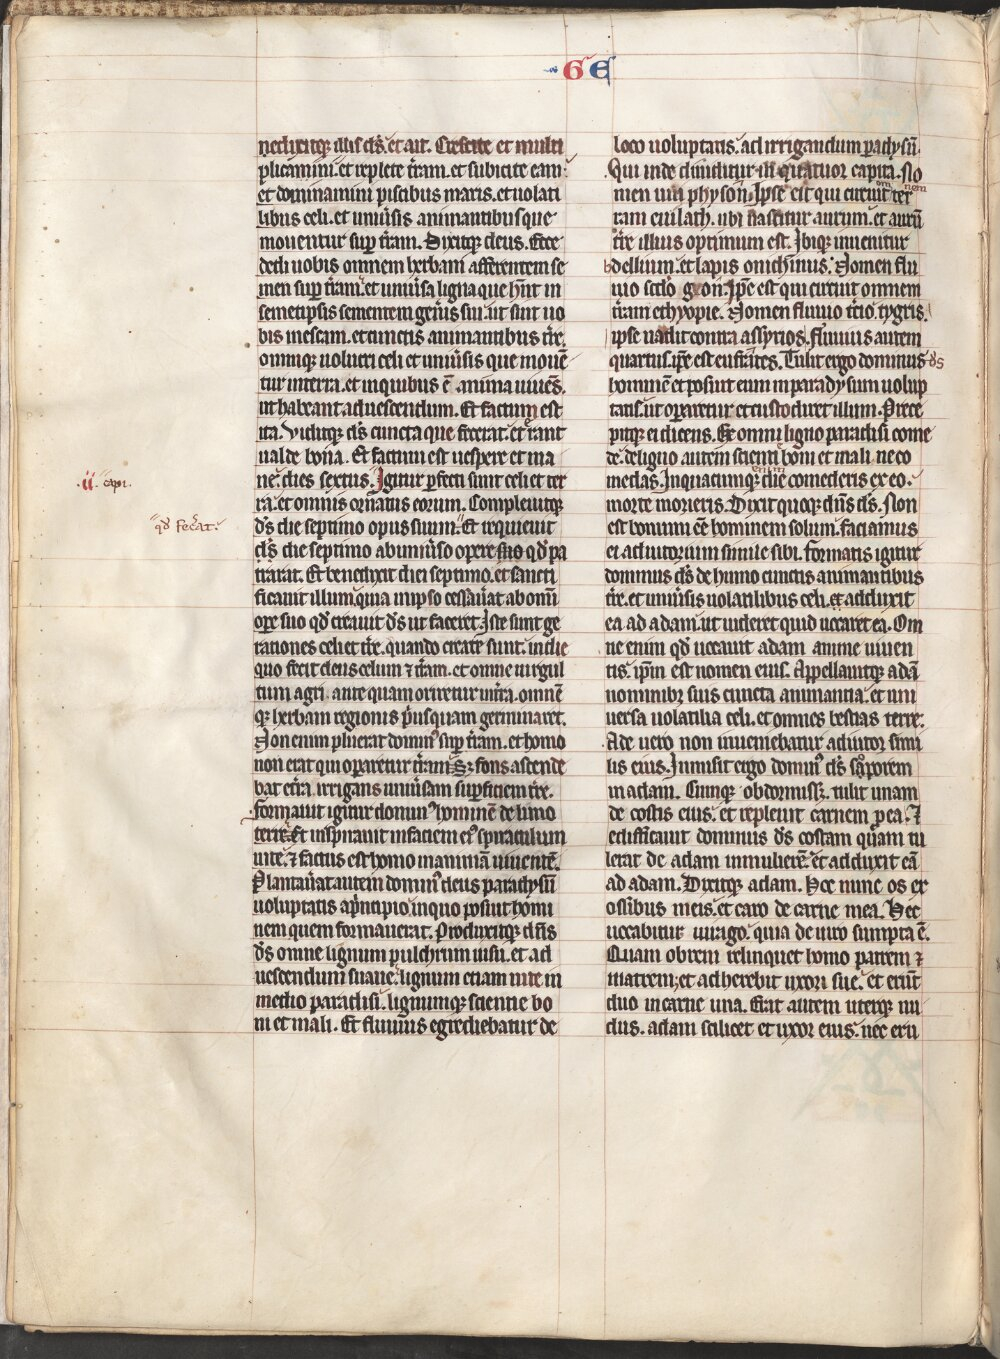 GE
nedixitqꝫ illis ds̄. et ait. Crescite et multi
plicamini. et replete t̄ram. et subicite eam:
et dominamini piscibus maris. et uolati
libus celi. et uniūsis animantibus que
mouentur sup t̄ram. Dixitqꝫ deus. Ecce
dedi uobis omnem herbam afferentem se
men sup t̄ram. et uniūsa ligna que hn̄t in
semetipsis sementem gen̄is sui. ut sint uo
bis in escam. et cunctis animantibus t̄re.
omniqꝫ uolucri celi et uniūsis que mouē
tur in terra. et in quibus ē anima uiuēs.
ut habeant ad uescendum. Et factum est
ita. Viditqꝫ ds̄ cuncta que fecerat. et erant
ualde bona. Et factum est uespere et ma
ne. dies sextus. Igitur pfecti sunt celi et ter
.ii. capi.
ra. et omnis ornatus eorum. Compleuitqꝫ
d̄s die septimo opus suum. Et requieuit
qd̄ fecāt.
ds̄ die septimo ab uniūso opere suo qd̄ pa
trarat. Et benedixit diei septimo. et sancti
ficauit illum. quia in ipso cessāuat ab omī
ope suo qd̄ creauit d̄s ut faceret. Iste sunt ge
rationes celi et t̄re. quando create sunt. in die
quo fecit deus celum ⁊ t̄ram. et omne uirgul
tum agri. ante quam oriretur in t̄ra. omnē
qꝫ herbam regionis p̄usquam germinaret.
Non enim pluerat dominꝰ sup t̄ram. et homo
non erat qui oparetur t̄ram. Sꝫ fons ascende
bat e t̄ra. irrigans uniūsam supficiem t̄re.
formauit igitur dominꝰ hominē de limo
terre. Et inspirauit in faciem eiꝰ spiraculum
uite. ⁊ factus est homo in animā uiuentē.
Plantāuat autem dominꝰ deus paradysū
uoluptatis a p̄ncipio. in quo posuit homi
nem quem formauerat. Produxitqꝫ dn̄s
d̄s omne lignum pulchrum uisu. et ad
uescendum suaue. lignum etiam uite in
medio paradisi. lignumqꝫ scientie bo
ni et mali. Et fluuius egrediebatur de
loco uoluptatis. ad irrigandum paradysū.
Qui inde diuiditur in quatuor capita. No
men uni physon. Ipse est qui circuit ter
om nem
ram euilath. ubi nascitur aurum. et aurū
t̄re illius optimum est. Ibiqꝫ inuenitur
bdellium. et lapis onichinus. Nomen flu
uio scdo gyon. Ip̄e est qui circuit omnem
t̄ram ethyopie. Nomen fluuio t̄cio. tygris.
ipse uadit contra assyrios. fluuius autem
quartus. ip̄e est eufrates. Tulit ergo dominus d̄s
hominē et posuit eum in paradysum uolup
tatis. ut oparetur et custodiret illum. Prece
pitqꝫ ei dicens. Ex omni ligno paradisi come
de. de ligno autem scientie boni et mali ne co
medas. In quacumqꝫ die comederis ex eo.
enim
morte morieris. Dixit quoqꝫ dn̄s ds̄. Non
est bonum ēe hominem solum. faciamus
ei adiutorium simile sibi. formatis igitur
dominus ds̄ de humo cunctis animantibus
t̄re. et uniūsis uolatilibus celi. et adduxit
ea ad adam. ut uideret quid uocaret ea. Om
ne enim qd̄ uocauit adam anime uiuen
tis. ip̄m est nomen eius. Appellauitqꝫ adā
nominibꝫ suis cuncta animantia. et uni
uersa uolatilia celi. et omnes bestias terre.
Ade uero non inueniebatur adiutor simi
lis eius. Inmisit ergo dominꝰ ds̄ soporem
in adam. Cumqꝫ obdormissꝫ. tulit unam
de costis eius. et repleuit carnem p ea. ⁊
edificauit dominus d̄s costam quam tu
lerat de adam in mulierē. et adduxit eā
ad adam. Dixitqꝫ adam. Hoc nunc os ex
ossibus meis. et caro de carne mea. Hec
uocabitur uirago. quia de uiro sumpta ē.
Quam obrem relinquet homo patrem ⁊
matrem. et adherebit uxori sue. et erūt
duo in carne una. Erat autem uterqꝫ nu
dus. adam scilicet et uxor eius. nec eru